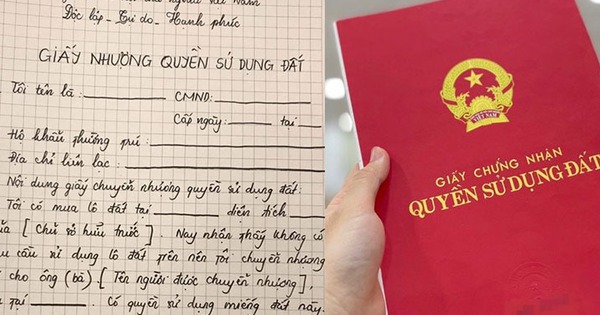 Độc lập - Tự do - Hạnh phúc
GIẤY NHƯỢNG QUYỀN SỬ DỤNG ĐẤT
Tôi tên là: CMND:
Cấp ngày: tại
Hộ khẩu thường trú:
Địa chỉ liên lạc:
Nội dung giấy chuyển nhượng quyền sử dụng đất:
Tôi có mua lô đất tại diện tích
[Chủ sở hữu trước]. Nay nhận thấy không có
cầu sử dụng lô đất trên nên tôi chuyển nhượng
cho ông (bà) [Tên người được chuyển nhượng],
tại Có quyền sử dụng miếng đất này.
VIỆT NAM
GIẤY CHỨNG NHẬN
QUYỀN SỬ DỤNG ĐẤT